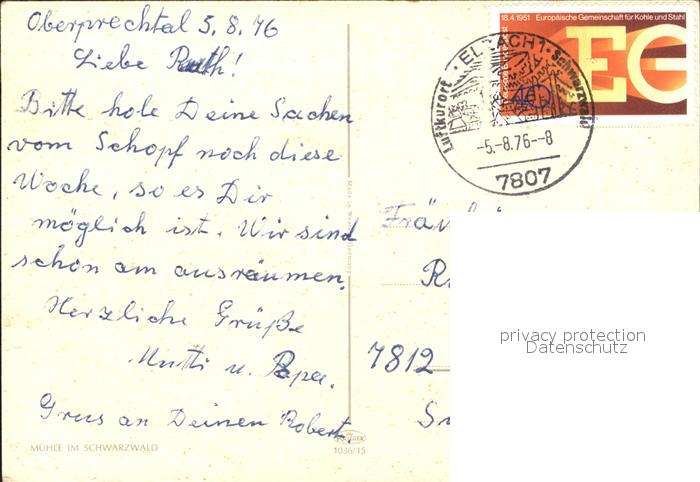 Oberprechtal 5.8.76
Liebe Ruth!
Bitte hole Deine Sachen
vom Schopf noch diese
Woche, so es Dir
möglich ist. Wir sind
schon am ausräumen.
Herzliche Grüße
Mutti u. Papa.
Gruss an Deinen Robert.
MÜHLE IM SCHWARZWALD
1036/15
18.4.1951 Europäische Gemeinschaft für Kohle und Stahl
EG
Luftkurort · ELZACH 1 · Schwarzwald
-5.-8.76--8
7807
7812
privacy protection
Datenschutz